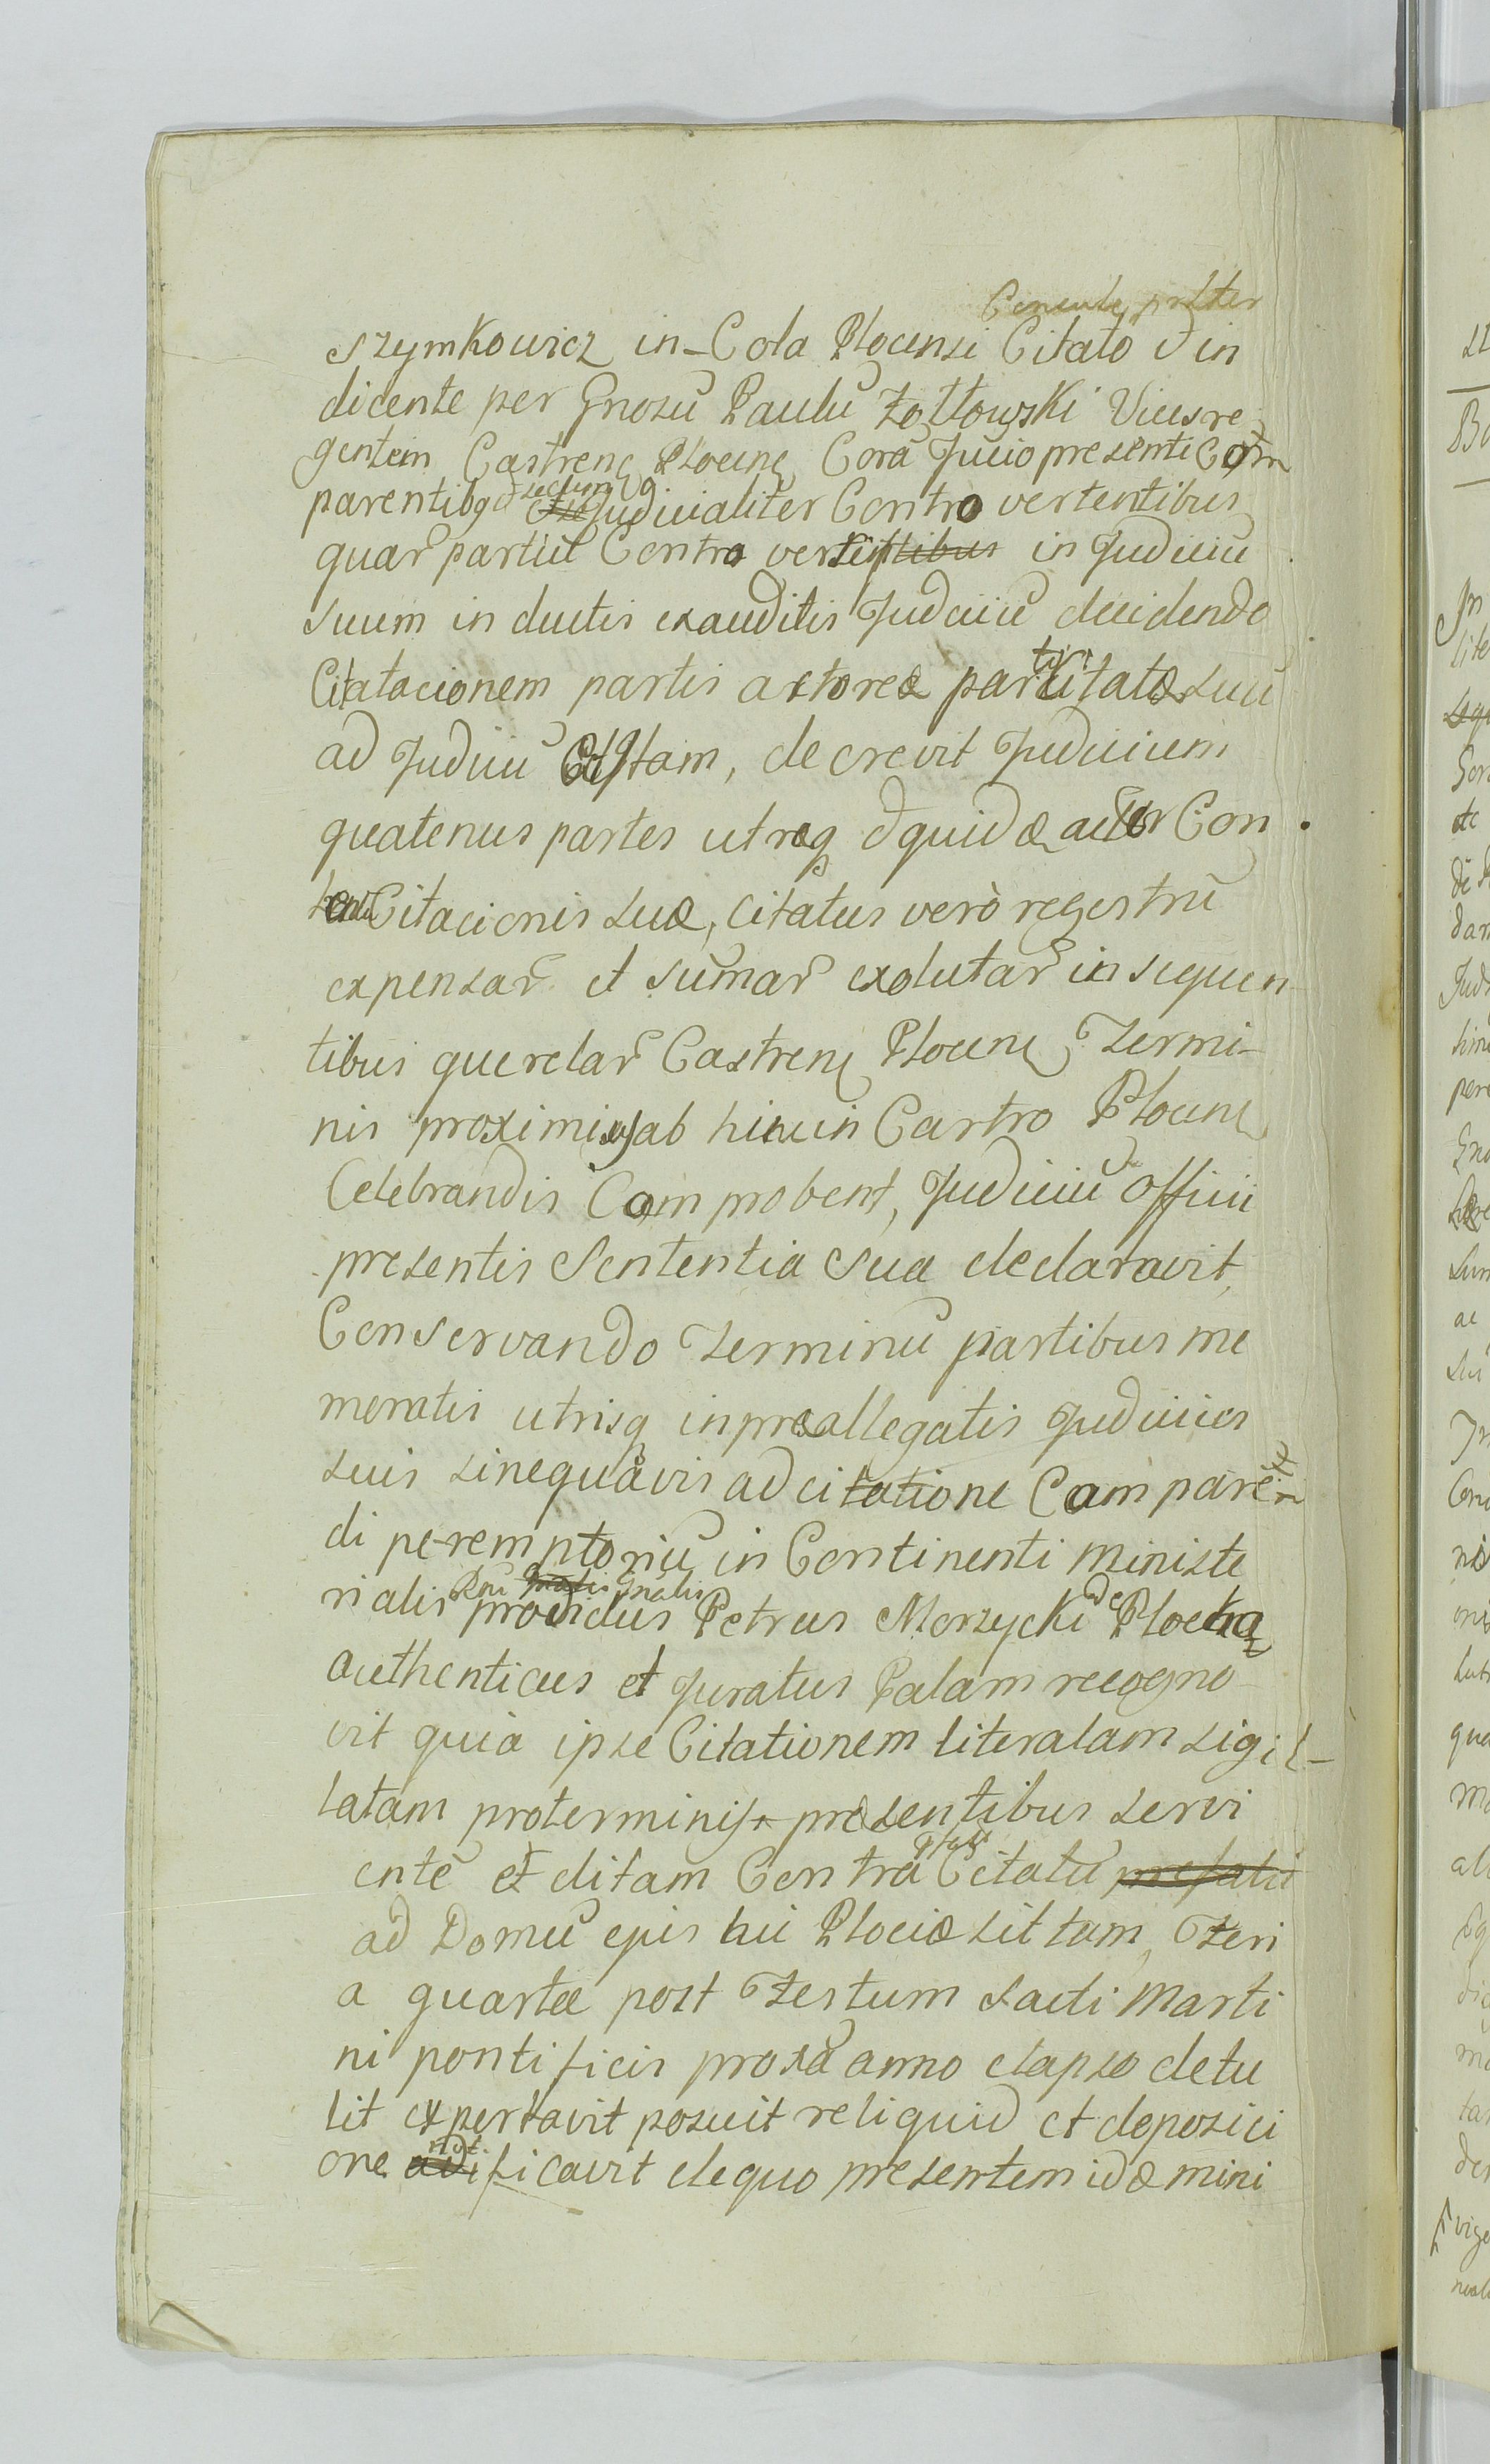 Szymkowicz in-Cola Plocensi Citato & in
dicente per Gnosū Paulū Żołtowski Vicesre
gentem Castrenẽ Plocenẽ Corā Jucio presenti Com
parentibq̨ & secum Judicialiter Contro vertentibus
quar̃ partiū Contro versijs in Judiciū
suum in ductis exauditis Judiciū decidendo
Citatacionem partis actoreæ parti Citatæ suū
ad Judiciū, decrevit Judicium
quatenus partes utræq̨ & quidæ actor Con
tenta Citacionis suæ, Citatus verò regestrū
expensar̃ et sumar̃ exolutar̃ in sequen-
tibus querelar̃ Castrenẽ Plocenẽ Termi-
nis proximis ab hinc in Castro Plocenẽ
Celebrandis Comprobent, Judiciū officii
presentis Sententia sua declaravit,
Conservando Terminū partibus me
moratis utrisq̨ in præallegatis Judiciies
suis sinequavis adcitatione Comparē
di peremptoriū in Continenti Ministe
rialis Rni Gnalis providus Petrus Morzycki de Plocka
authenticus et Juratus Palam recogno
vit quia ipse Citationem literalam sigil-
latam proterminis presentibus servi
entē et ditam Contra Citatū prefatū
ad Domū ejus hic Plociæ sittam, Feri
a quarta post Festum Sacti Marti
ni pontificis proxā anno elapso detu
lit exportavit posuit reliquid et deposici
one notificavit de quo presentem idæ mini